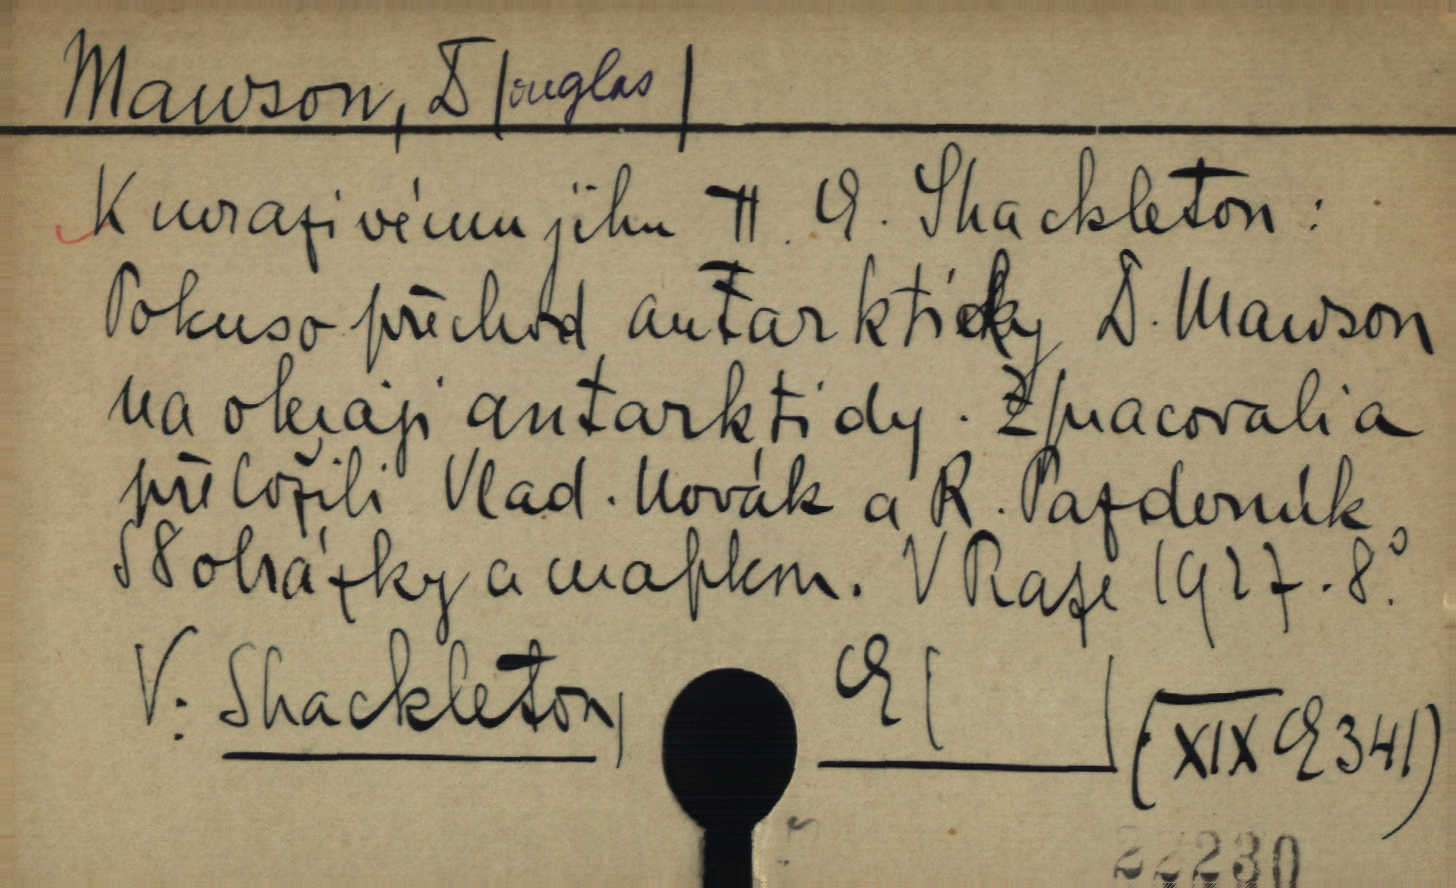 Mawson, D/ouglas/
K mrazivému jihu II. E. Shackleton:
Pokus o přechod antarktidky D. Mawson
na okraji antarktidy. Zpracovali a
přeložili Vlad. Novák a R. Pazderník
S 8 obrázky a mapkou. V Praze 1927. 8°.
V: Shackleton, E( ) (XIX E 341)
22230